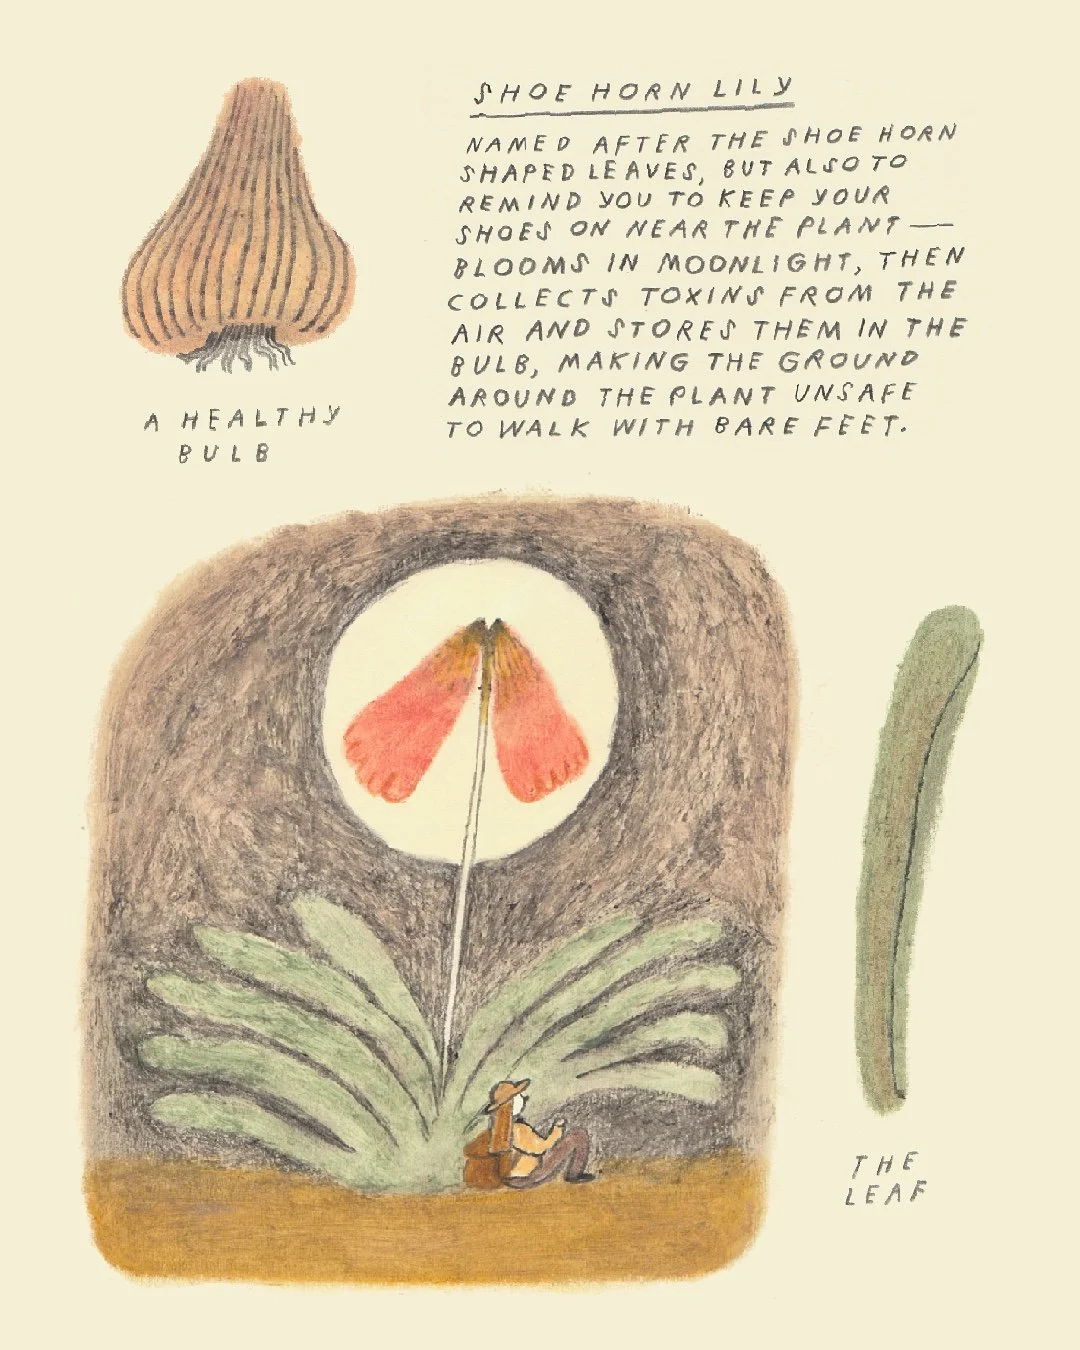 SHOE HORN LILY
NAMED AFTER THE SHOE HORN
SHAPED LEAVES, BUT ALSO TO
REMIND YOU TO KEEP YOUR
SHOES ON NEAR THE PLANT —
BLOOMS IN MOONLIGHT, THEN
COLLECTS TOXINS FROM THE
AIR AND STORES THEM IN THE
BULB, MAKING THE GROUND
AROUND THE PLANT UNSAFE
TO WALK WITH BARE FEET.
A HEALTHY
BULB
THE
LEAF